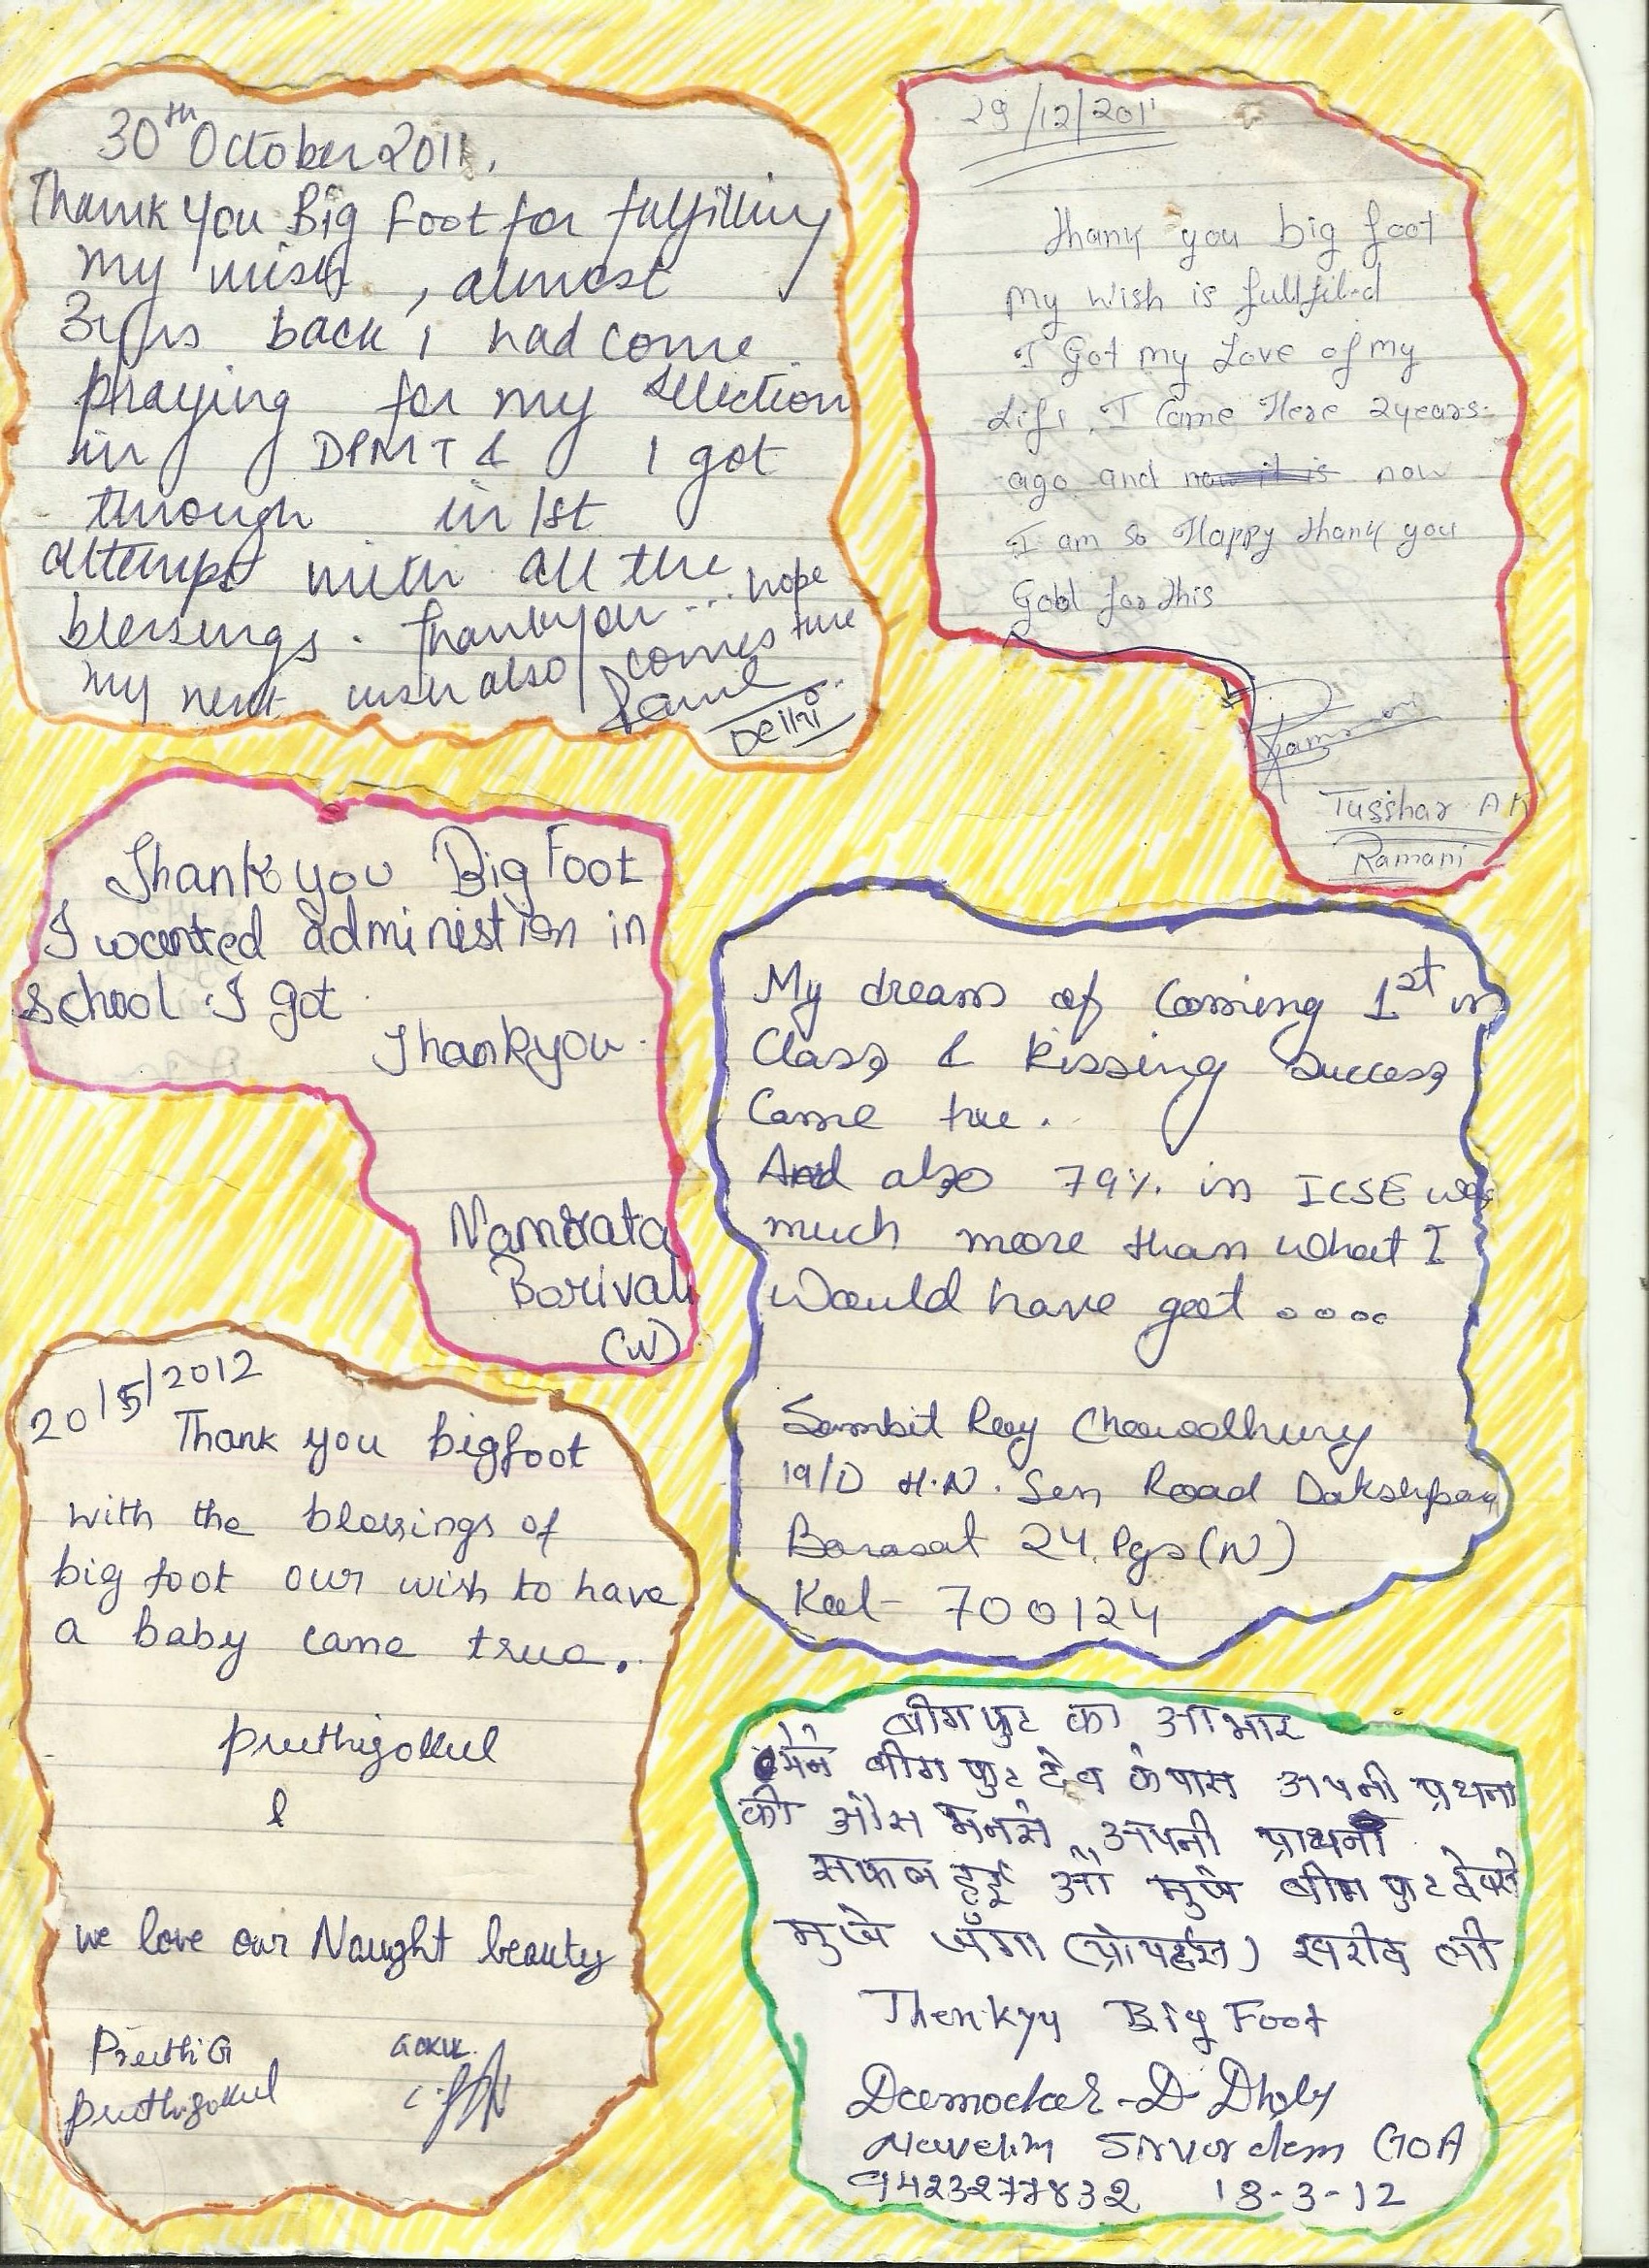 30th October 2011.
Thank you Big Foot for fulfilling
my wish, almost
3yrs back I had come
praying for my selection
in DPMT & I got
through in 1st
attempt with all the
blessings. Thankyou... hope
my next wish also comes true
Delhi
29/12/2011
Thank you big foot
my wish is fullfiled
I Got my Love of my
Life. I Came Here 2years
ago and now it is now
I am so Happy thank you
God for this
Tusshar A
Ramani
Thank you Big Foot
I wanted administion in
school I got
Thankyou.
Namrata
Borivali
(W)
My dream of Coming 1st in
Class & kissing success
Came true.
And also 79% in ICSE was
much more than what I
Would have got ....
Sambit Roy Chowdhury
19/D H.N. Sen Road
Barasat 24 Pgs (N)
Kol- 700124
20/5/2012
Thank you bigfoot
with the blessings of
big foot our wish to have
a baby came true.
preethigokul
&
we love our Naught beauty
Preethi G GOKUL
preethigokul
बीग फुट का आभार
मैने बीग फुट देव के पास अपनी प्रथना
की अपनी प्राथना
सफल हुई मुजे बीग फुट देवने
मुजे खरीद ली
Thenkyu Big Foot
Damodar D Dholy
Navelim Sirvordem GOA
9423277832 18-3-12